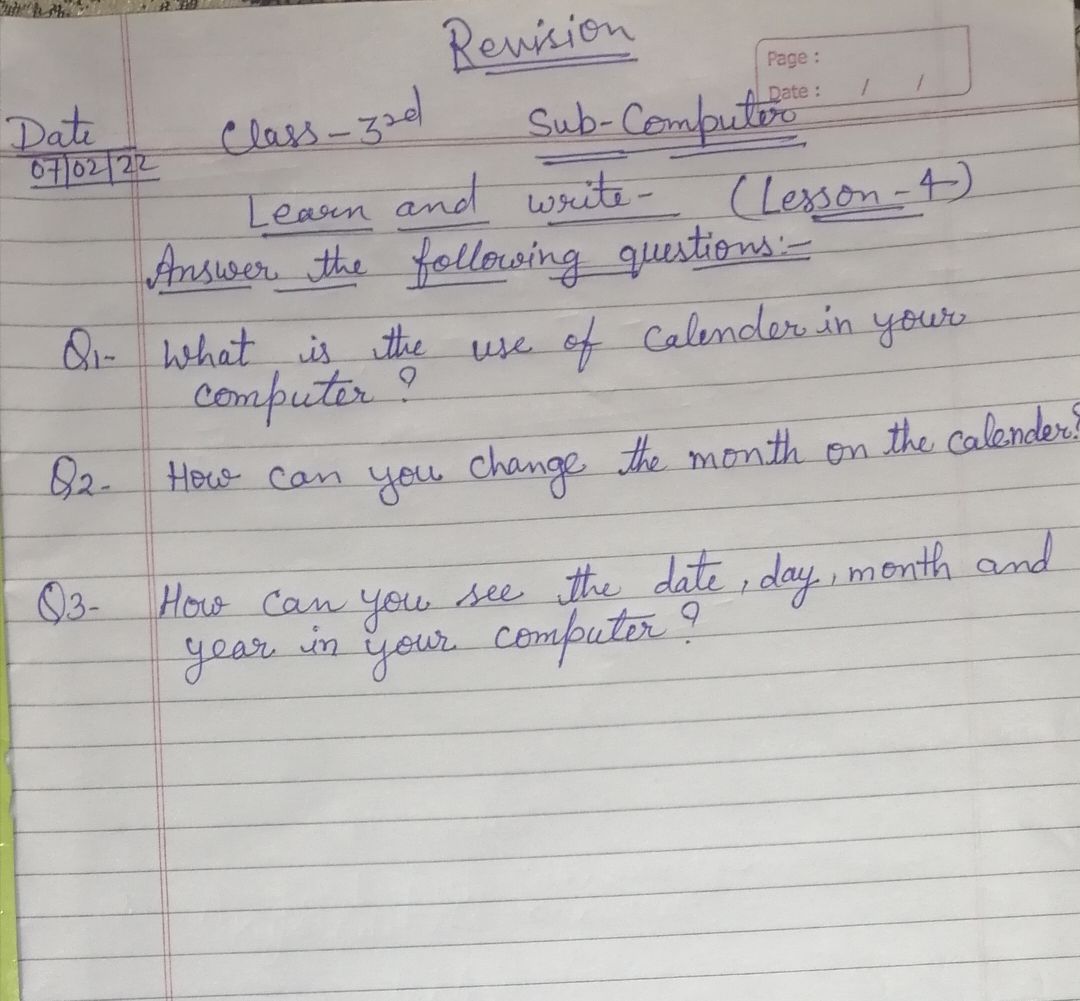 Revision
Page :
Date :    /    /
Date    Class - 3rd    Sub-Computer
07/02/22
Learn and write - (Lesson - 4)
Answer the following questions:-
Q1- What is the use of Calender in your
computer ?
Q2- How can you change the month on the calender?
Q3- How can you see the date, day, month and
year in your computer ?